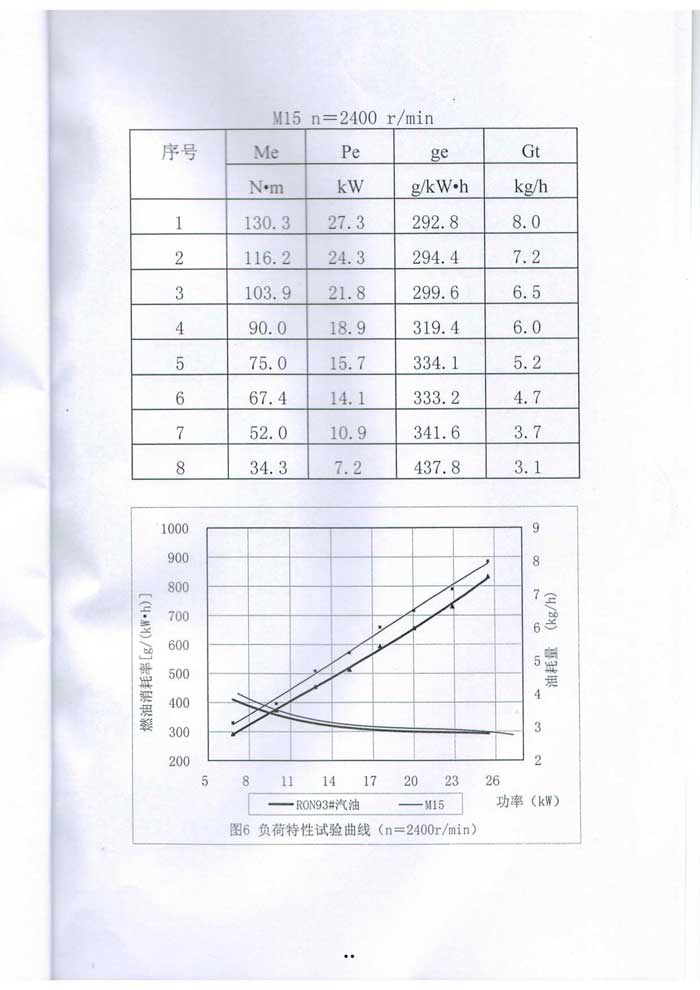 M15 n=2400 r/min
序号 Me Pe ge Gt
N•m kW g/kW•h kg/h
1 130.3 27.3 292.8 8.0
2 116.2 24.3 294.4 7.2
3 103.9 21.8 299.6 6.5
4 90.0 18.9 319.4 6.0
5 75.0 15.7 334.1 5.2
6 67.4 14.1 333.2 4.7
7 52.0 10.9 341.6 3.7
8 34.3 7.2 437.8 3.1
燃油消耗率[g/(kW•h)]
1000
900
800
700
600
500
400
300
200
9
8
7
6
5
4
3
2
油耗量 (kg/h)
5 8 11 14 17 20 23 26
功率(kW)
RON93#汽油 M15
图6 负荷特性试验曲线(n=2400r/min)